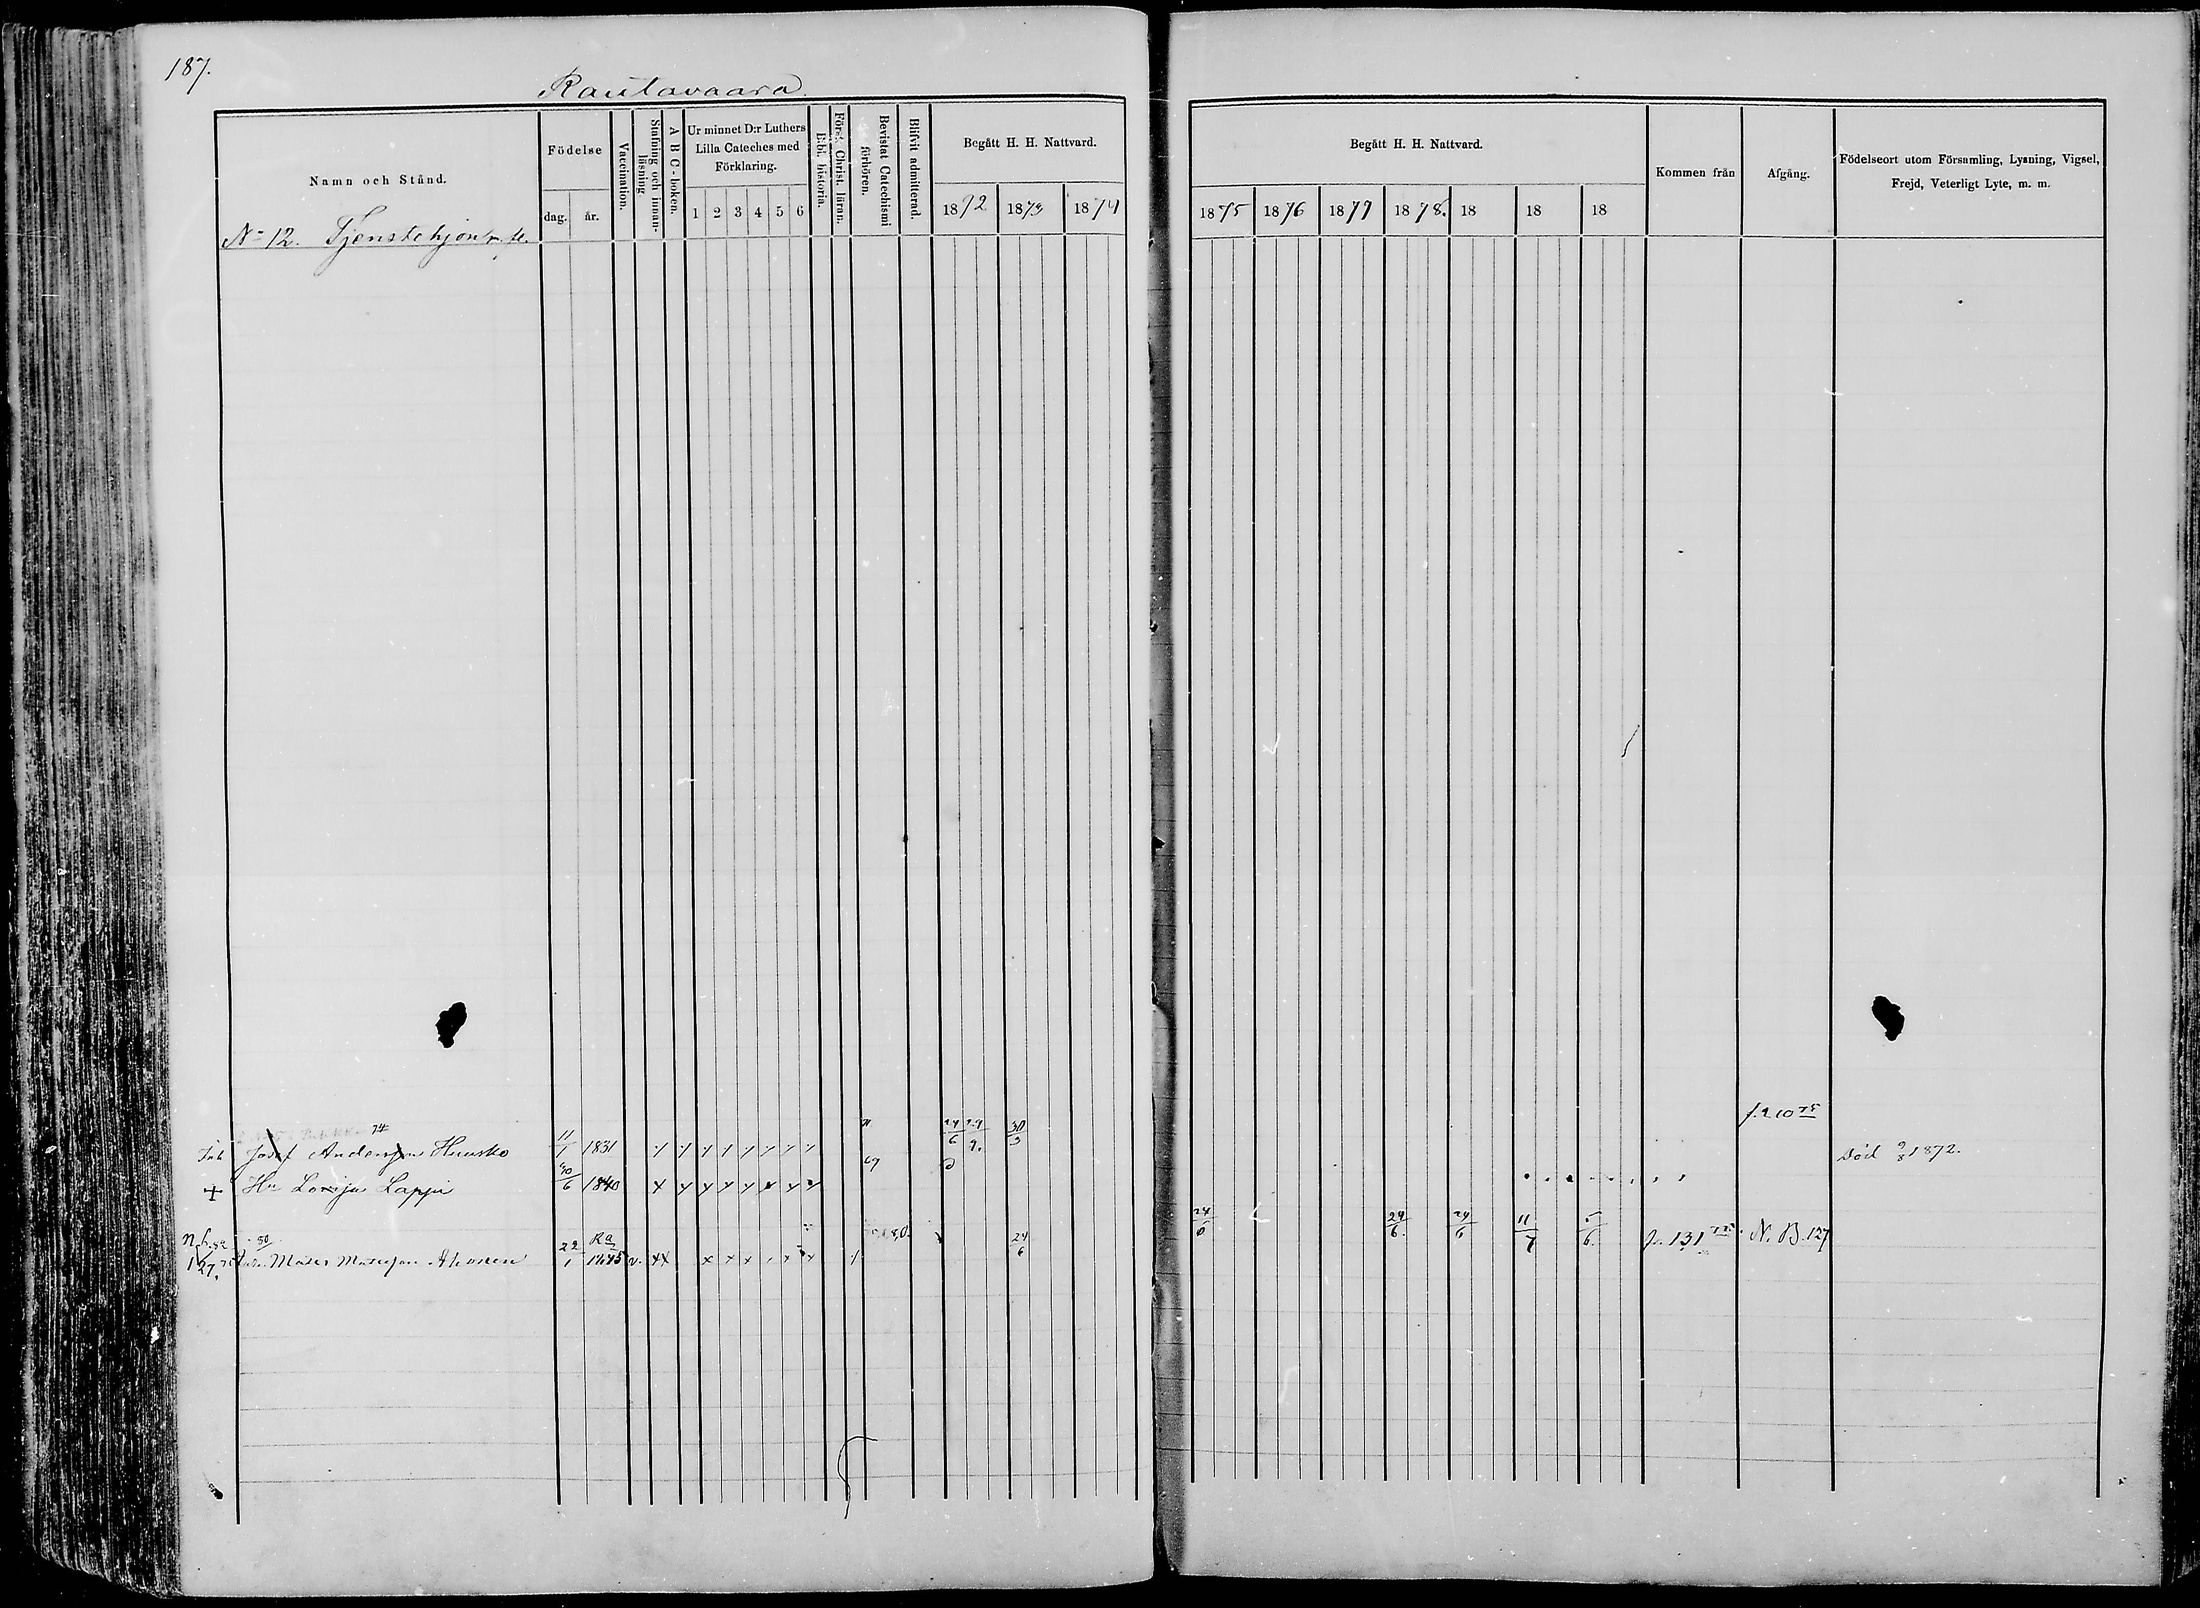 187.
Rautavaara
Namn och Stånd.
Födelse
dag.
år.
Vaccination.
Stafning och innan-läsning
A B C-boken.
Ur minnet D:r Luthers Lilla Cateches med Förklaring.
1 2 3 4 5 6
Bibl. historia.
Först. Christ. läran.
Bevistat Catechismi förhören.
Blifvit admitterad.
Begått H. H. Nattvard.
1872 1873 1874
Begått H. H. Nattvard.
1875 1876 1877 1878. 18 18 18
Kommen från
Afgång.
Födelseort utom Församling, Lysning, Vigsel, Frejd, Veterligt Lyte, m. m.
No 12. Tjenstehjon
74
Inh Josef Andersson Huusko 11/1 1831 24/6 30/3
+ Hu Lovisa Lappi 30/6 1840 Död 9/8 1872.
Mats Matsson Ahonen 22/1 1845 v. 24/6 24/6 24/6 24/6 11/7 5/6 p. 131 N. B. 127